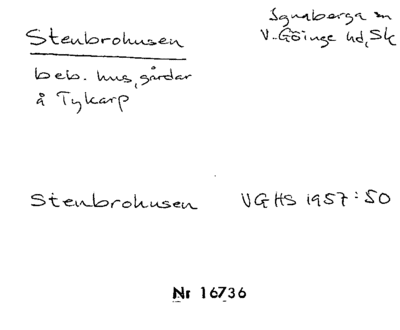 Stenbrohusen
Ignaberga sn
V. Göinge hd, Sk
beb. hus, gårdar
å Tykarp
Stenbrohusen VGHS 1957:50
Nr 16736